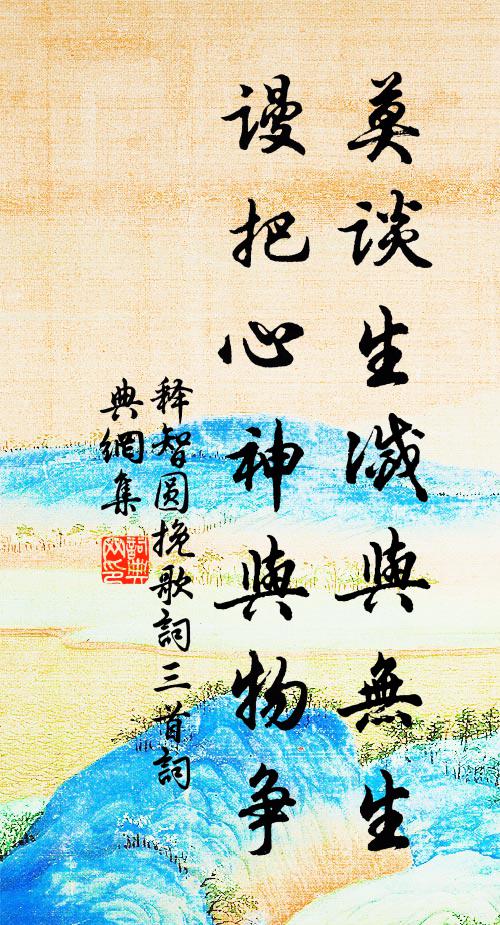 莫談生滅與無生
謾把心神與物争
释智圆挽歌詞三首詞
典網集
詞典網印